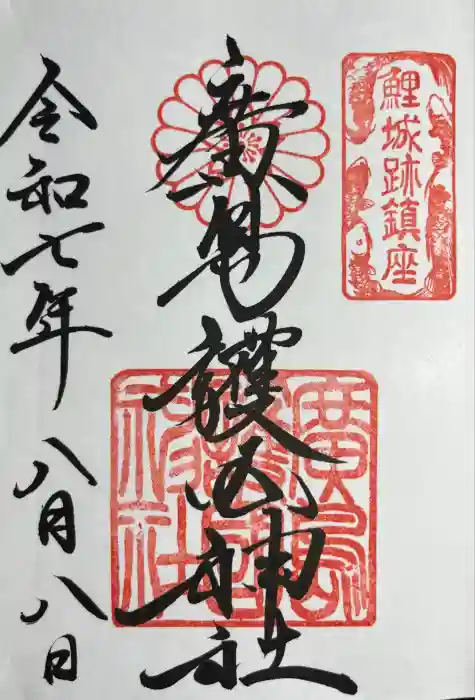 鯉城跡鎮座
廣島護國神社
廣島護國神社
令和七年 八月八日